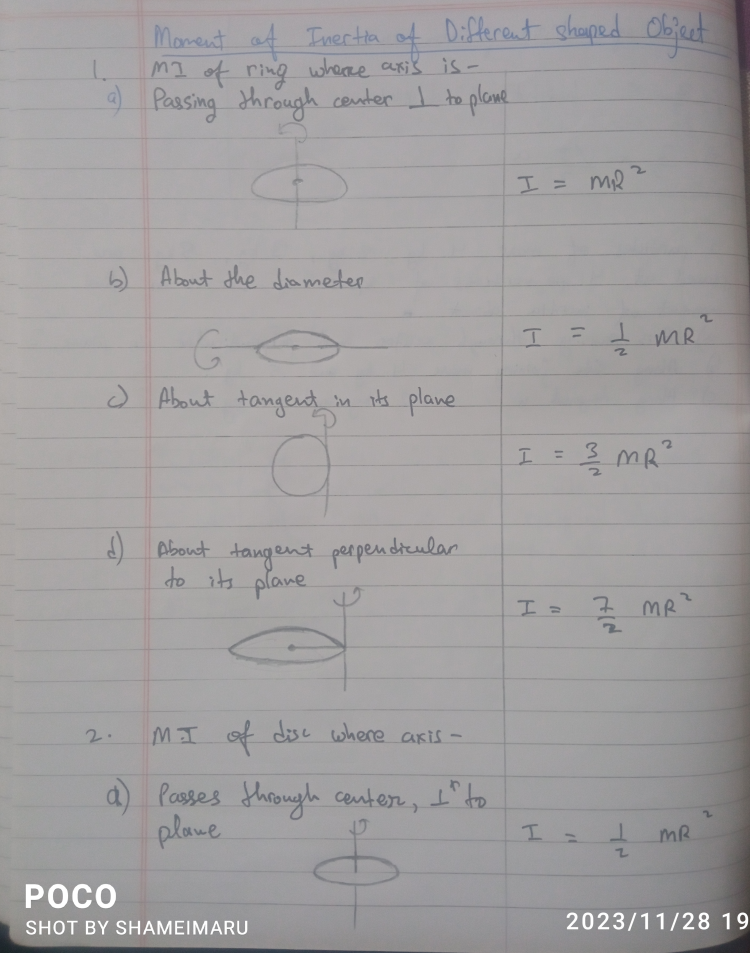 Moment of Inertia of Different shaped Object
1. MI of ring where axis is -
a) Passing through center ⊥ to plane
I = MR²
b) About the diameter
I = 1/2 MR²
c) About tangent in its plane
I = 3/2 MR²
d) About tangent perpendicular
to its plane
I = 7/2 MR²
2. M.I of disc where axis -
a) Passes through center, ⊥ʳ to
plane
I = 1/2 MR²
POCO
SHOT BY SHAMEIMARU
2023/11/28 19